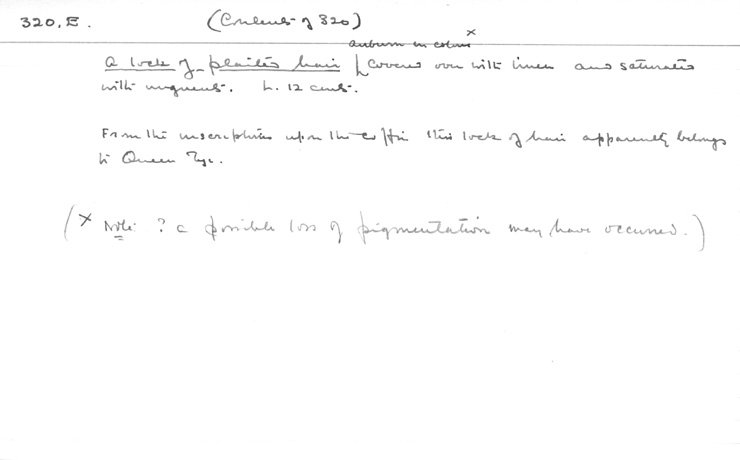 320, E. (Contents of 320)
auburn in colour x
A lock of plaited hair [covered over with linen and saturated
with unguents. L. 12 cents.
From the inscriptions upon the coffin this lock of hair apparently belongs
to Queen Tye.
(x Note: ? a possible loss of pigmentation may have occurred.)